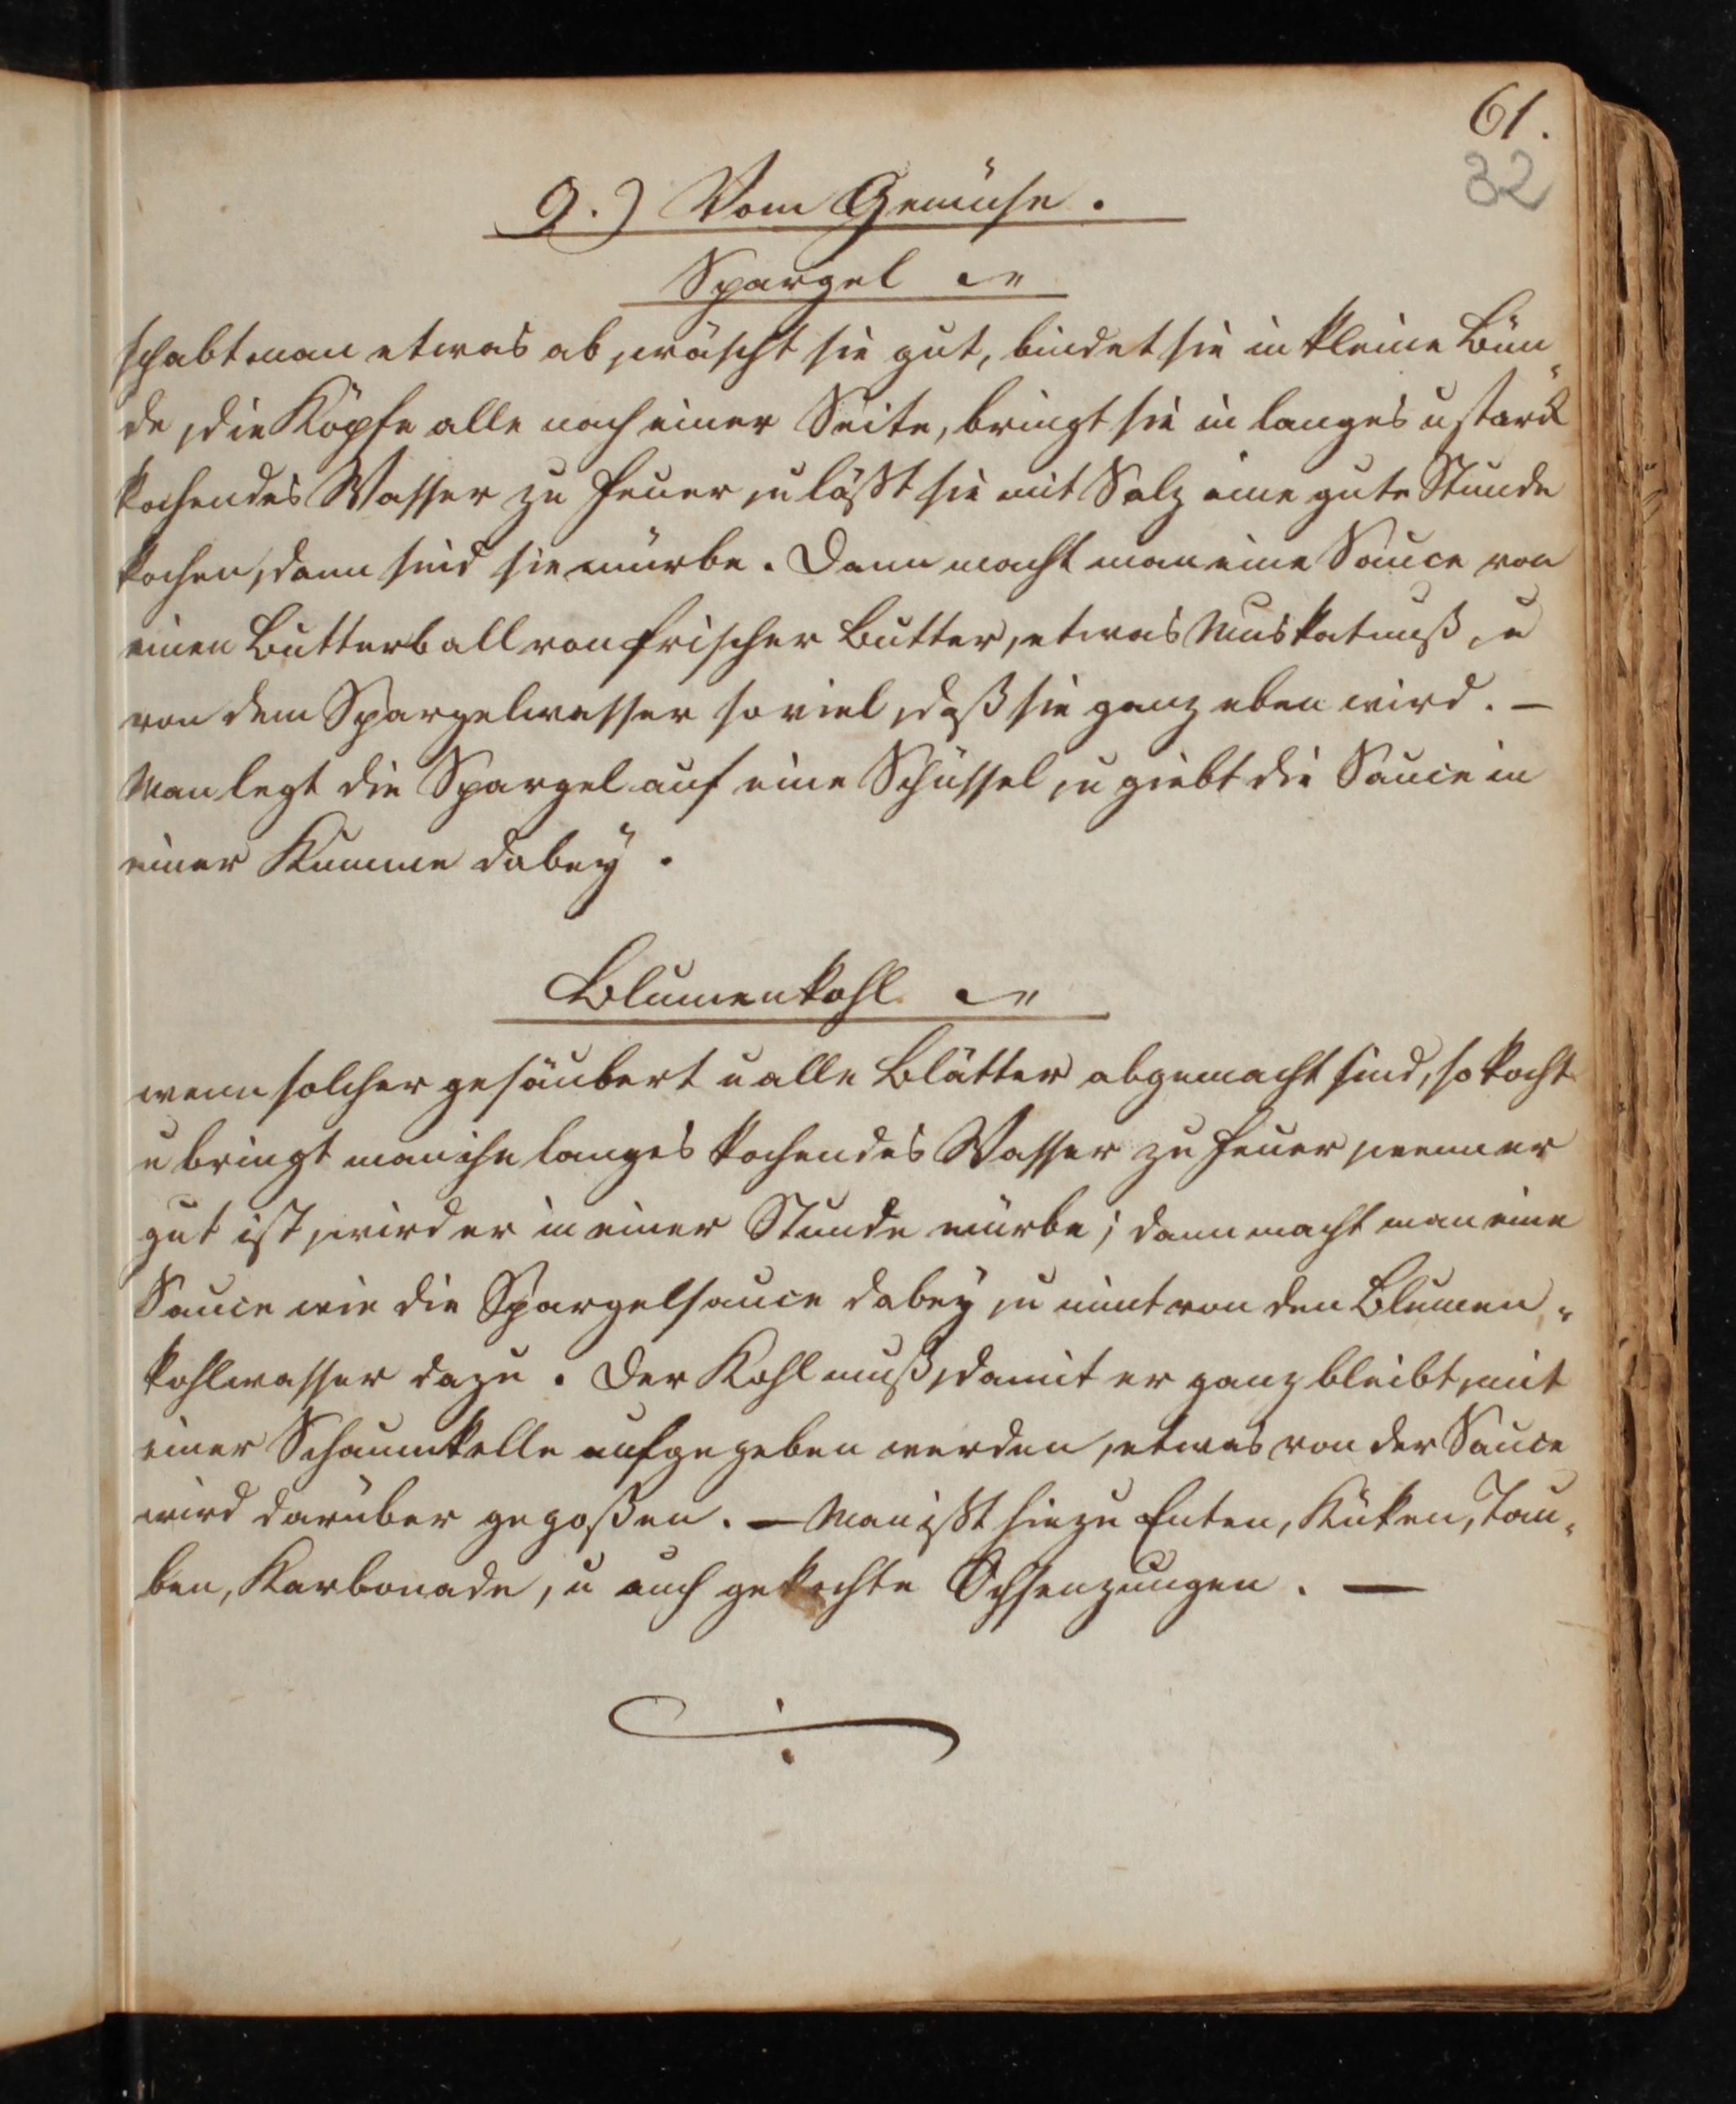 61.
32
9.) Vom Gemüse.
Spargel
schabt man etwas ab, wäscht sie gut, bindet sie in kleine Bün„
de, die Köpfe alle nach einer Seite, bringt sie in langes u stark
kochendes Wasser zu Feuer, u läßt sie mit Salz eine gute Stunde
kochen, dann sind sie mürbe. Dann macht man eine Sauce von
einen Butterball von frischer Butter, etwas Muskatnuß, u
von dem Spargelwasser so viel, daß sie ganz eben wird. —
Man legt die Spargel auf eine Schüssel, u giebt die Sauce in
einer Kumme dabey.
Blumenkohl
wenn solcher gesäubert u alle Blätter abgemacht sind, so kocht
u bringt man ihn langes kochendes Wasser zu Feuer, wenn er
gut ist, wird er in einer Stunde mürbe; dann macht man eine
Sauce wie die Spargelsauce dabey, u nimt von den Blumen„
kohlwasser dazu. Der Kohl muß, damit er ganz bleibt, mit
einer Schaumkelle aufgegeben werden, etwas von der Sauce
wird darüber gegoßen. — Man ißt hiezu Enten, Küken, Tau„
ben, Karbonade, u auch gekochte Ochsenzungen. —